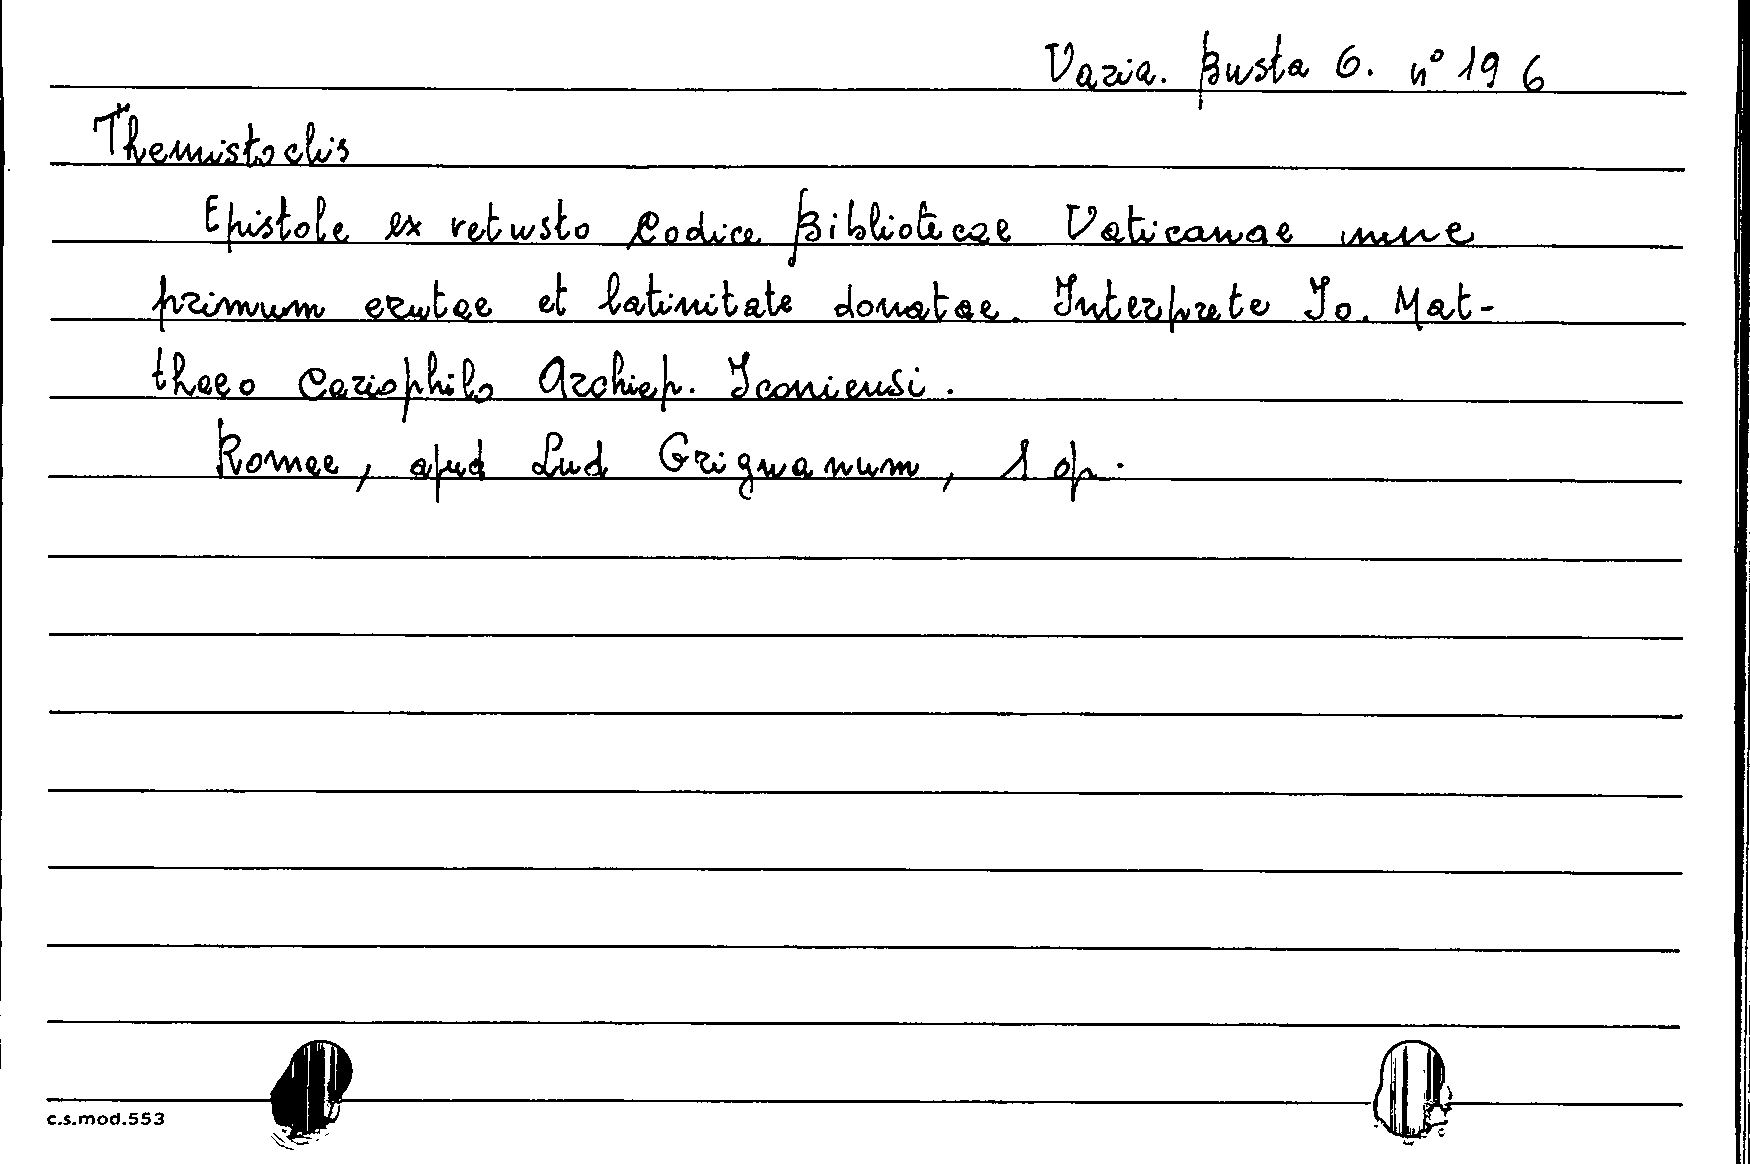 Varia. Busta 6. n° 196
Themistoclis
Epistole ex vetusto Codice Bibliotecae Vaticanae nunc
primum erutae et latinitate donatae. Interprete Jo. Mat-
thaeo Cariophilo Archiep. Iconiensi.
Romae, apud Lud Grignanum, 1 op.
c.s.mod.553